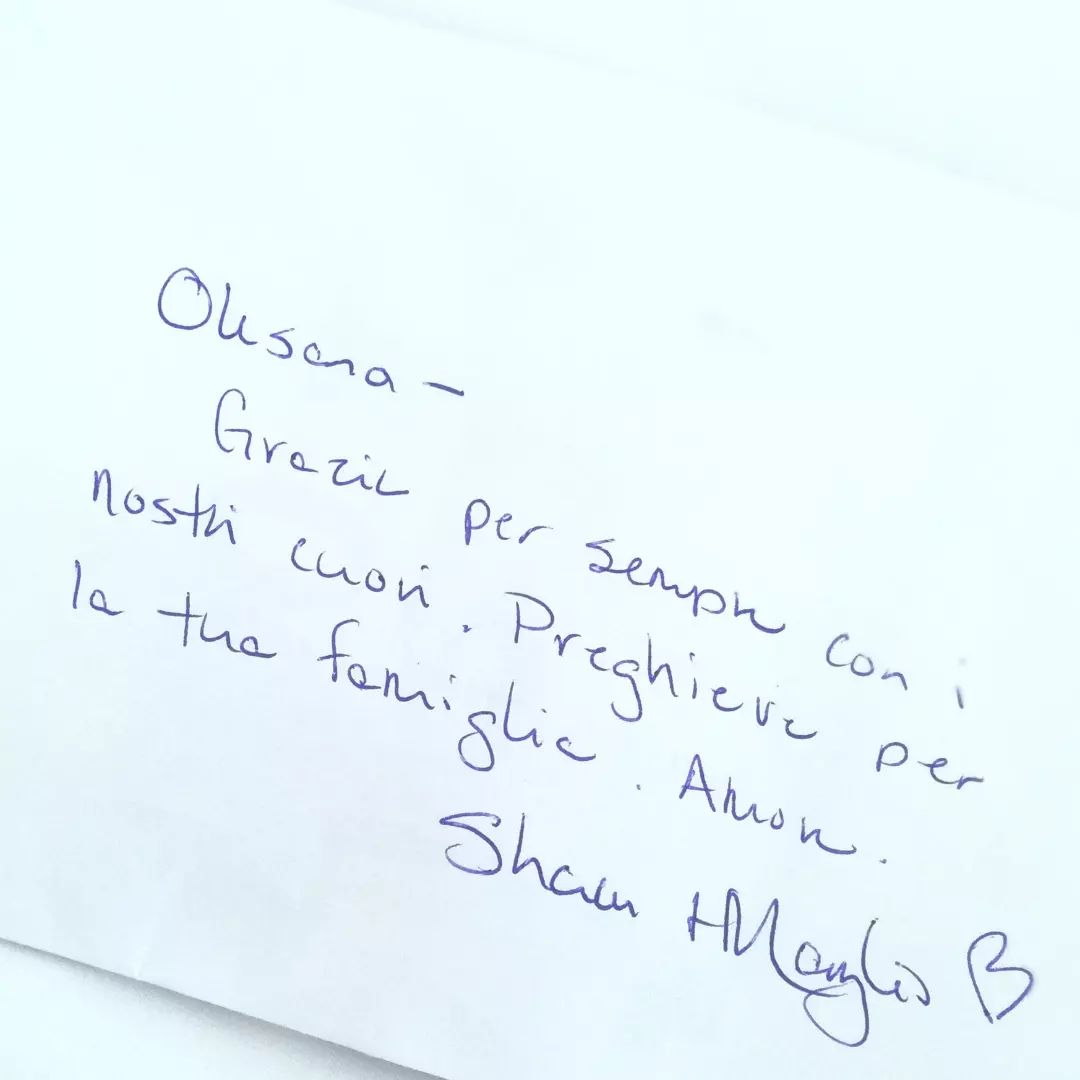 Oksana -
Grazie per sempre con i
nostri cuori. Preghiere per
la tua famiglia. Amore.
Shawn +